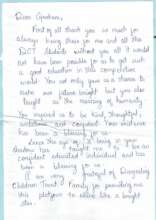 Dear Grandson,
First of all thank you so much for
always being there for me and all the
DCT Students without you all it would
not have been possible for us to get such
a good education in this competitive
world. You not only gave us a chance to
make our future bright but you also
taught us the meaning of humanity.
You inspired us to be kind, thoughtful,
and confident. Your existence
has been a blessing for us.
Since the age of I being in your
has taught me to be an
confident educated individual and has
been a blessing for us.
I am very of Deepalaya
Children Trust Family for providing me
this platform to shine like a bright
star.